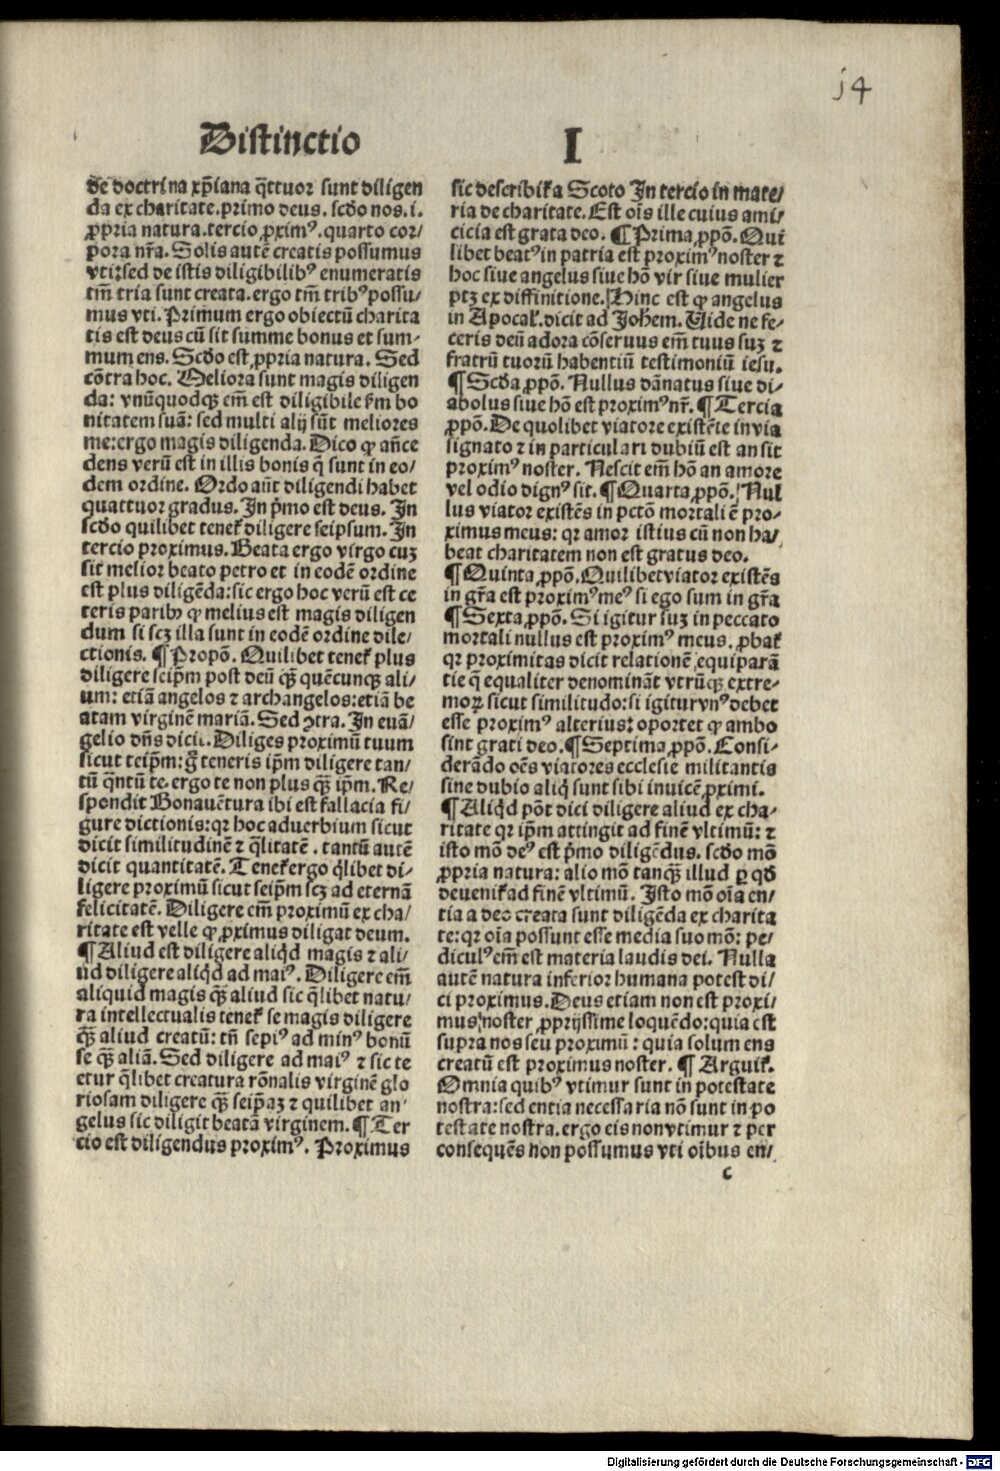 j4
Distinctio I
de doctrina xp̄iana q̄ttuor sunt diligen
da ex charitate. primo deus. scd̄o nos. i.
ꝓpria natura. tercio ꝓximꝰ. quarto cor/
pora nr̄a. Solis autē creatis possumus
vti: sed de istis diligibilibꝰ enumeratis
tm̄ tria sunt creata. ergo tm̄ tribꝰ possu/
mus vti. Primum ergo obiectū charita
tis est deus cū sit summe bonus et sum-
mum ens. Scd̄o est ꝓpria natura. Sed
cōtra hoc. Meliora sunt magis diligen
da: vnūquodqꝫ em̄ est diligibile ẜm bo
nitatem suā: sed multi alij sūt meliores
me: ergo magis diligenda. Dico ꝙ añce
dens verū est in illis bonis q̄ sunt in eo/
dem ordine. Ordo aūt diligendi habet
quattuor gradus. In p̄mo est deus. In
scd̄o quilibet teneť diligere seipsum. In
tercio proximus. Beata ergo virgo cuꝫ
sit melior beato petro et in eodē ordine
est plus diligēda: sic ergo hoc verū est ce
teris paribꝰ ꝙ melius est magis diligen
dum si scꝫ illa sunt in eodē ordine dile/
ctionis. ¶ Propō. Quilibet teneť plus
diligere seip̄m post deū qꝫ̄ quēcunqꝫ ali/
um: etiā angelos ⁊ archangelos: etiā be
atam virginē mariā. Sed ꝯtra. In euā/
gelio dn̄s dicit. Diliges proximū tuum
sicut teip̄m: g̊ teneris ip̄m diligere tan/
tū q̄ntū te. ergo te non plus qꝫ̄ ip̄m. Re/
spondit Bonauētura ibi est fallacia fi/
gure dictionis: qr hoc aduerbium sicut
dicit similitudinē ⁊ q̄litatē. tantū autē
dicit quantitatē. Teneť ergo q̄libet di/
ligere proximū sicut seip̄m scꝫ ad eternā
felicitatē. Diligere em̄ proximū ex cha/
ritate est velle ꝙ ꝓximus diligat deum.
¶ Aliud est diligere aliqd̄ magis ⁊ ali/
ud diligere aliqd̄ ad maiꝰ. Diligere em̄
aliquid magis qꝫ̄ aliud sic q̄libet natu/
ra intellectualis teneť se magis diligere
qꝫ̄ aliud creatū: tn̄ sepiꝰ ad minꝰ bonū
se qꝫ̄ aliā. Sed diligere ad maiꝰ ⁊ sic te
etur q̄libet creatura rōnalis virginē glo
riosam diligere qꝫ̄ seip̄aꝫ ⁊ quilibet an/
gelus sic diligit beatā virginem. ¶ Ter
cio est diligendus proximꝰ. Proximus
sic describiť a Scoto In tercio in mate/
ria de charitate. Est oīs ille cuius ami/
cicia est grata deo. ¶ Prima ꝓpō. Qui
libet beatꝰ in patria est proximꝰ noster ⁊
hoc siue angelus siue hō vir siue mulier
ptꝫ ex diffinitione. Hinc est ꝙ angelus
in Apocal̄. dicit ad Joh̄em. Uide ne fe-
ceris deū adora cōseruus em̄ tuus suꝫ ⁊
fratrū tuorū habentiū testimoniū iesu.
¶ Scd̄a ꝓpō. Nullus dānatus siue di/
abolus siue hō est proximꝰ nr̄. ¶ Tercia
ꝓpō. De quolibet viatore existēte in via
signato ⁊ in particulari dubiū est an sit
proximꝰ noster. Nescit em̄ hō an amore
vel odio dignꝰ sit. ¶ Quarta ꝓpō. Nul
lus viator existēs in pctō mortali ē pro-
ximus meus: qr amor istius cū non ha/
beat charitatem non est gratus deo.
¶ Quinta ꝓpō. Quilibet viator existēs
in gr̄a est proximꝰ meꝰ si ego sum in gr̄a
¶ Sexta ꝓpō. Si igitur suꝫ in peccato
mortali nullus est proximꝰ meus. ꝓbať
qr proximitas dicit relationē equiparā
tie q̄ equaliter denomināt vtrūqꝫ extre-
moꝝ sicut similitudo: si igitur vnꝰ debet
esse proximꝰ alterius: oportet ꝙ ambo
sint grati deo. ¶ Septima ꝓpō. Consi-
derādo oēs viatores ecclesie militantis
sine dubio aliq̄ sunt sibi inuicē ꝓximi.
¶ Aliqd̄ pōt dici diligere aliud ex cha-
ritate qr ip̄m attingit ad finē vltimū: ⁊
isto mō deꝰ est p̄mo diligēdus. scd̄o mō
ꝓpria natura: alio mō tanqꝫ̄ illud ꝑ qd̄
deueniť ad finē vltimū. Isto mō oīa en/
tia a deo creata sunt diligēda ex charita
te: qr oīa possunt esse media suo mō: pe/
diculꝰ em̄ est materia laudis dei. Nulla
autē natura inferior humana potest di/
ci proximus. Deus etiam non est proxi/
mus noster ꝓprijssime loquēdo: quia est
supra nos seu proximū: quia solum ens
creatū est proximus noster. ¶ Arguiť.
Omnia quibꝰ vtimur sunt in potestate
nostra: sed entia necessaria nō sunt in po
testate nostra. ergo eis non vtimur ⁊ per
consequēs non possumus vti oībus en/
c
Digitalisierung gefördert durch die Deutsche Forschungsgemeinschaft - DFG